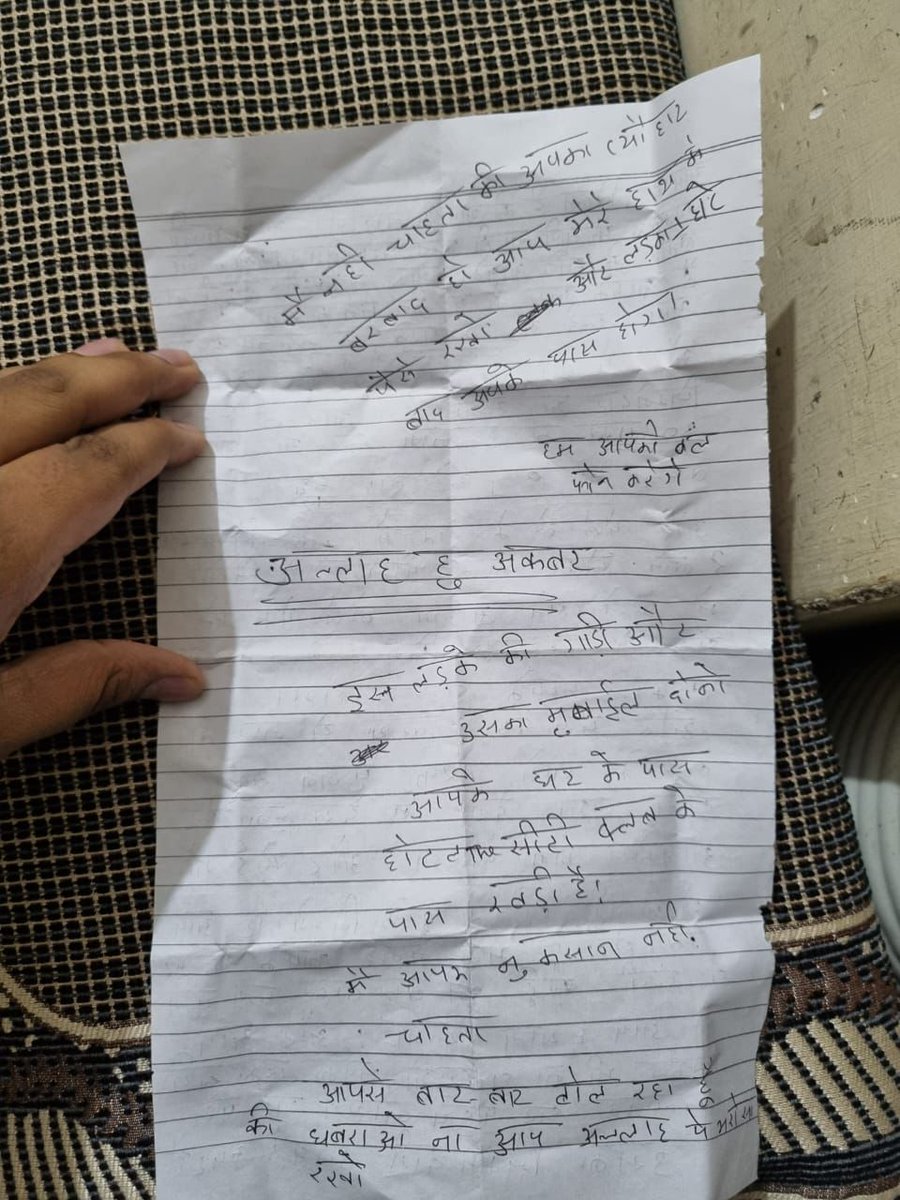 मै नही चाहता की अपका त्यौहार
बरबाद हो आप मेरे हाथ मे
पैसे रखो और लड़का 1 घंटे
बाद अपके पास होगा।
हम आपको कॅल
फोन करेगे
अल्लाह हु अकबर
इस लड़के की गाड़ी और
उसका मुबाईल दोनो
आपके घर के पास
होटल सीटी क्लब के
पास खड़ी है।
मै आपक नुकसान नही.
चाहता
आपसे बार-बार बोल रहा
की घबराओ ना आप अल्लाह पे भरोसा
रखो